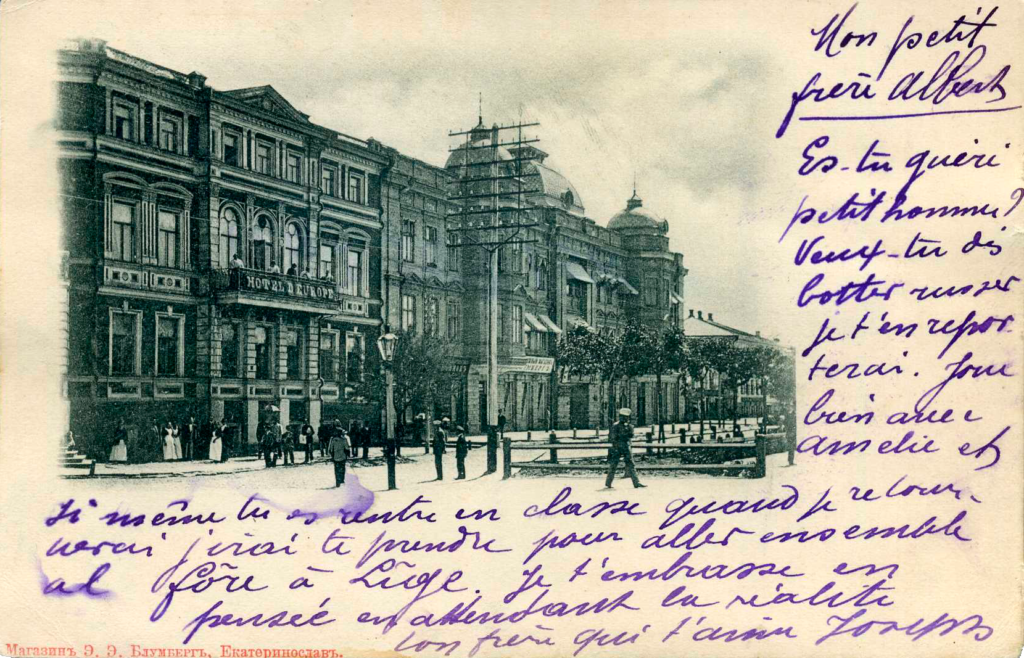 Mon petit
frère Albert
Es-tu guéri
petit homme?
Veux-tu dès
botter russes
je t'en repor
terai. Joue
bien avec
Amelie et
HOTEL D'EUROPE
si même tu es rentré en classe quand je retour-
nerai j'irai te prendre pour aller ensemble
al foire à Lîge. Je t'embrasse en
pensée en attendant la réalité
ton frère qui t'aime Joseph
Магазинъ Э. Э. Блумбергъ, Екатеринославъ.